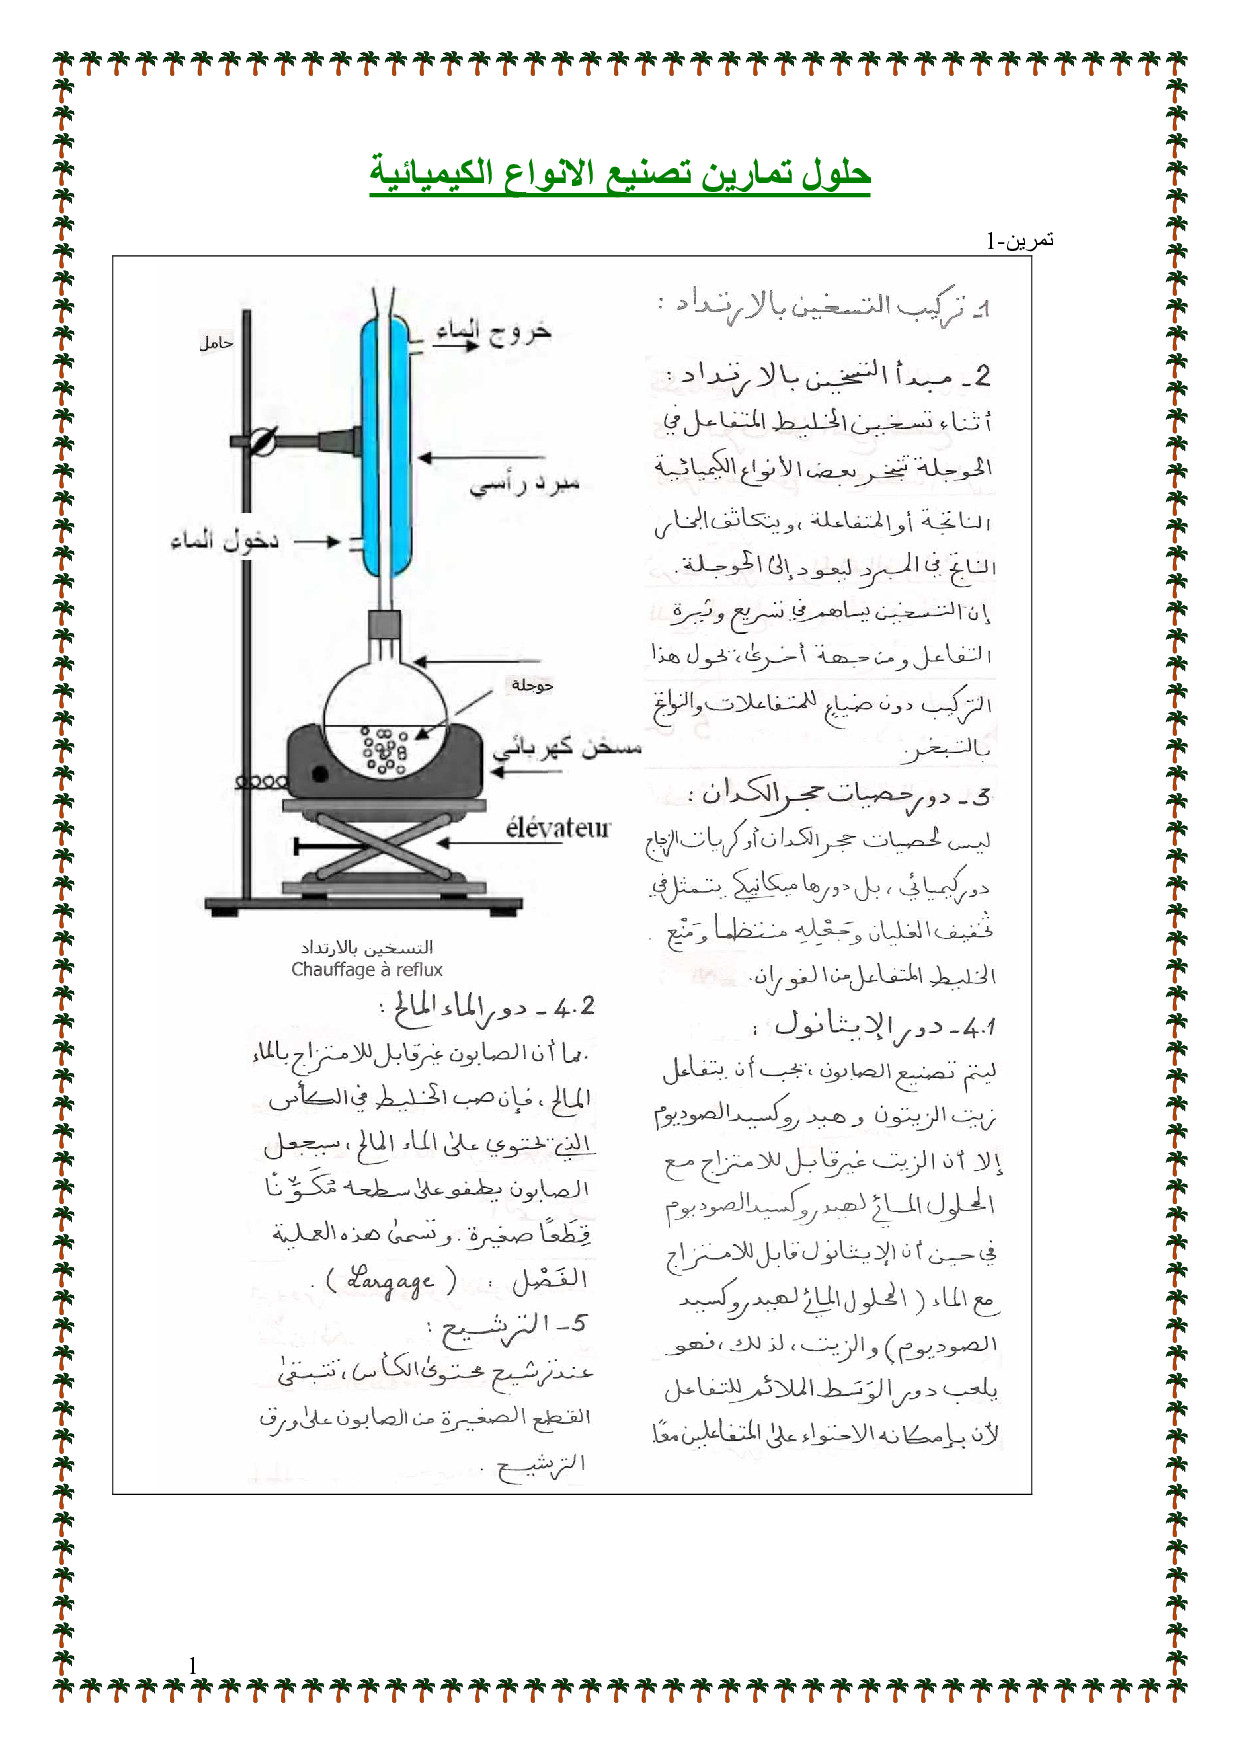 حلول تمارين تصنيع الانواع الكيميائية
تمرين-1
1- تركيب التسخين بالارتداد :
حامل
خروج الماء
مبرد رأسي
دخول الماء
حوجلة
مسخن كهربائي
élévateur
التسخين بالارتداد
Chauffage à reflux
2- مبدأ التسخين بالارتداد :
أثناء تسخين الخليط المتفاعل في
الحوجلة تتبخر بعض الأنواع الكيميائية
الناتجة أو المتفاعلة ، ويتكاثف البخار
الناتج في المبرد ليعود إلى الحوجلة .
إن التسخين يساهم في تسريع وثيرة
التفاعل ومن جهة أخرى ، يحول هذا
التركيب دون ضياع للمتفاعلات والنواتج
بالتبخر.
3- دور حصيات حجر الكدان :
ليس لحصيات حجر الكدان أو كريات الزجاج
دور كيميائي ، بل دورها ميكانيكي يتمثل في
تخفيف الغليان وجَعْلِهِ منتظما ومَنْع .
الخليط المتفاعل من الفوران.
4.1- دور الإيثانول :
ليتم تصنيع الصابون ، يجب أن يتفاعل
زيت الزيتون و هيدروكسيد الصوديوم
إلا أن الزيت غير قابل للامتزاج مع
المحلول المائي لهيدروكسيد الصوديوم
في حين أن الإيثانول قابل للامتزاج
مع الماء ( المحلول المائي لهيدروكسيد
الصوديوم) والزيت ، لذلك ، فهو
يلعب دور الوَسَط الملائم للتفاعل
لأن بإمكانه الاحتواء على المتفاعلين معًا.
4.2- دور الماء المالح :
بما أن الصابون غير قابل للامتزاج بالماء
المالح ، فإن صب الخليط في الكأس
الذي يحتوي على الماء المالح ، سيجعل
الصابون يطفو على سطحه مُكَوِّنًا
قِطَعًا صغيرة . وتسمى هذه العملية
الفَصْل : ( Largage ) .
5- الترشيح :
عند ترشيح محتوى الكأس ، تتبقى
القطع الصغيرة من الصابون على ورق
الترشيح .
1